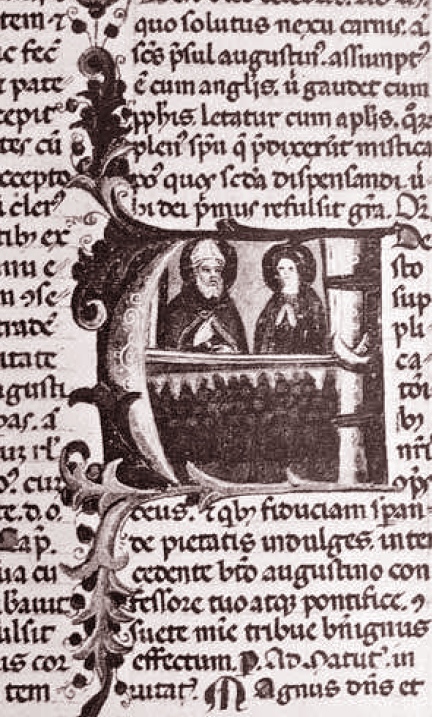 tem ⁊
ic fec̄
t pate
cepit
tes cū
ccepto
cler᾽
tib; ex
niu e
n ↄse
tradē
utate
gusti
pas. a
cur
te. d. o.
ap.
ua cu
bauit
ulsit
us cor
tem
quo solutus nexu carnis. a
scs p̄sul augustin᾽. assumpt᾽
ē cum anglis. ū gaudet cum
ꝓphis. letatur cum aplis. q̄
pleni sp̄u q̄ p̄dixerūt mistica
po᾽ quos scd̄a dispensandi. ū
bi dei p̄mus refulsit gr̄a. Or̄
De
sto
sup
pli
ca
tor
b;
nr̄i
deus. ⁊ qb; fiduciam sperān
de pietatis indulges. inter
cedente bt̄o augustino con
fessore tuo atq; pontifice. ↄ
suete mīe tribue bn̄ignus
effectum. P. Ad Matut᾽. in
uitat᾽. Magnus dn̄s et